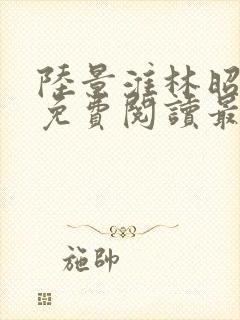 陸景淮林昭
免費閱讀最
施帥